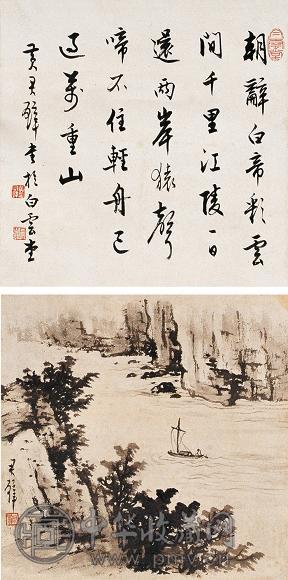 朝辭白帝彩雲
間千里江陵一日
還兩岸猿聲
啼不住輕舟已
過萬重山
黃君璧書於白雲堂
君璧
中华收藏网